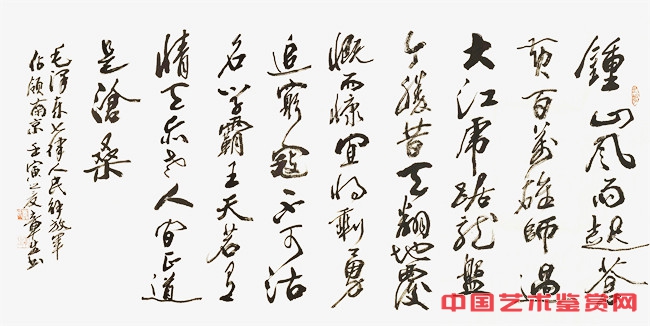 鍾山風雨起蒼
黃百萬雄師過
大江虎踞龍盤
今勝昔天翻地覆
慨而慷宜將剩勇
追窮寇不可沽
名學霸王天若有
情天亦老人間正道
是滄桑
毛澤東七律人民解放軍
佔領南京 壬寅之夏章
中国艺术鉴赏网